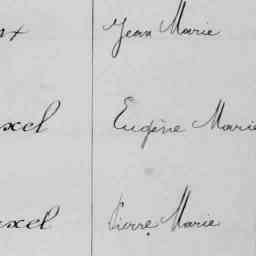 Jean Marie
Eugène Marie
Pierre Marie